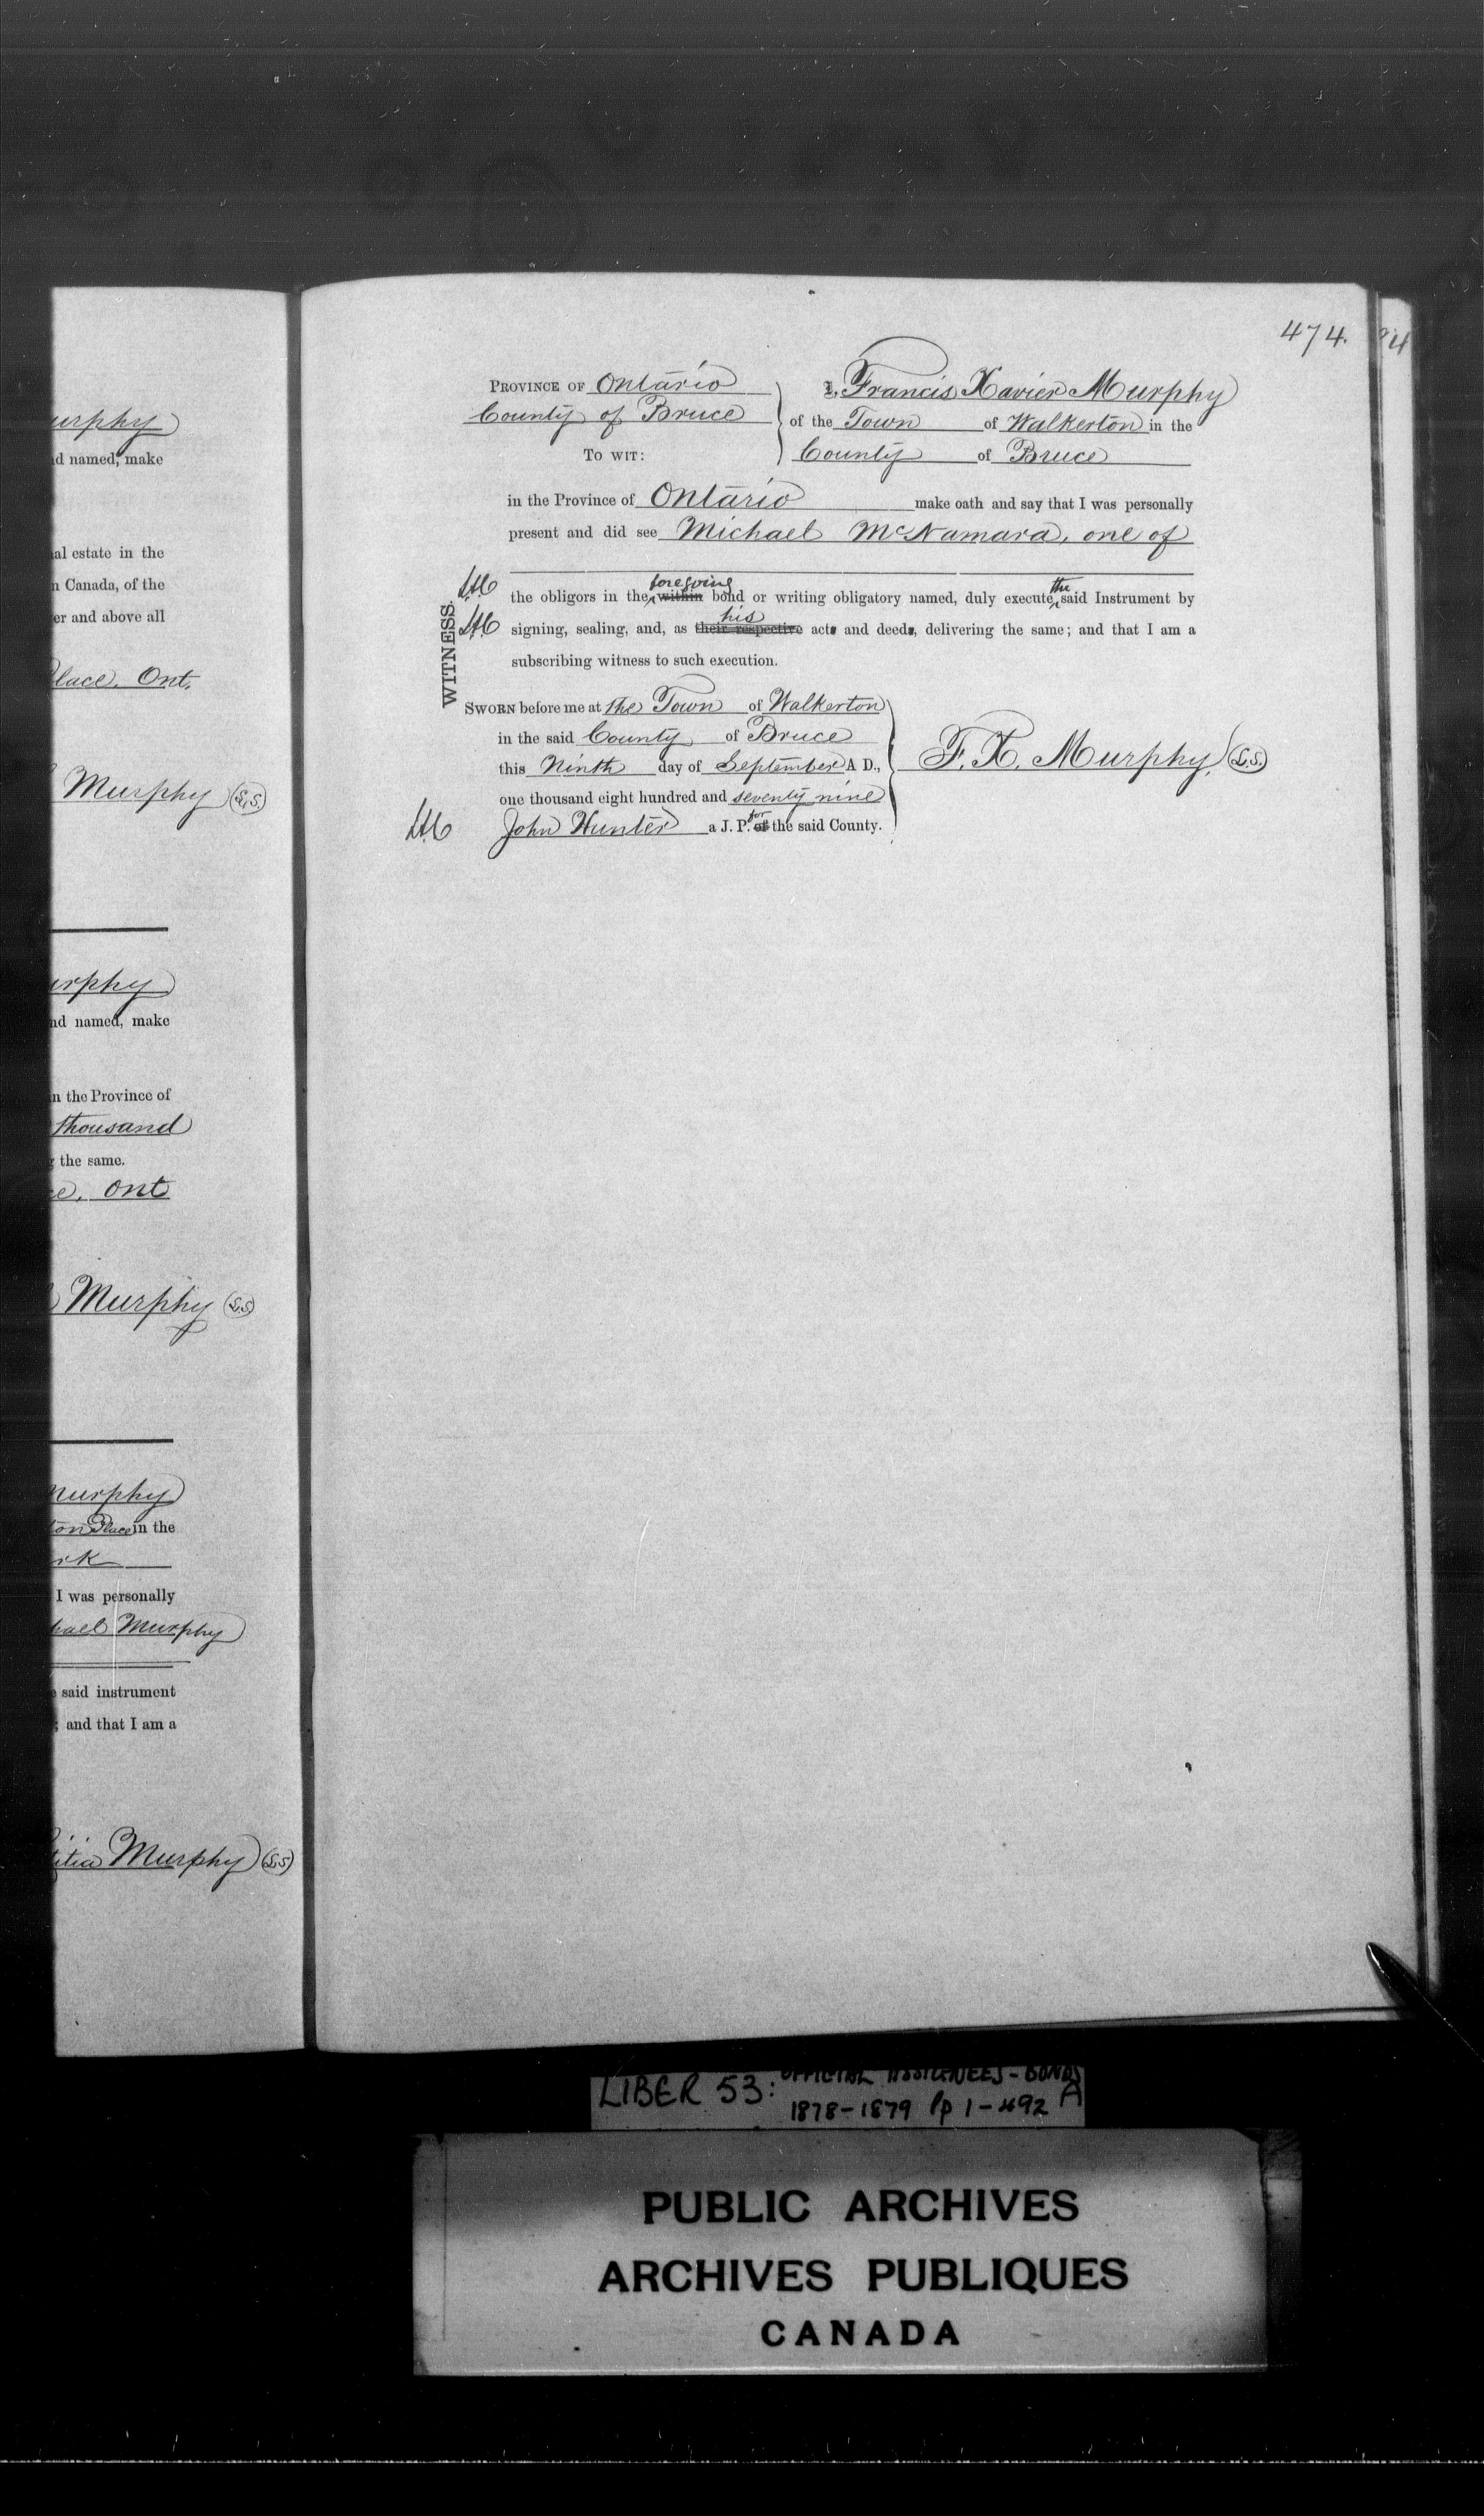 urphy
d named, make
al estate in the
n Canada, of the
er and above all
lace. Ont.
Murphy (L.S.)
urphy
nd named, make
n the Province of
thousand
the same.
ce, Ont
Murphy (L.S)
Murphy
ton Place in the
rk
I was personally
hael Murphy
said instrument
; and that I am a
itia Murphy (L.S)
474.
PROVINCE OF Ontario
County of Bruce
TO WIT:
I, Francis Xavier Murphy
of the Town of Walkerton in the
County of Bruce
in the Province of Ontario make oath and say that I was personally
present and did see Michael McNamara, one of
WITNESS.
foregoing the
the obligors in the within bond or writing obligatory named, duly execute said Instrument by
his
signing, sealing, and, as their respective acts and deeds, delivering the same; and that I am a
subscribing witness to such execution.
SWORN before me at the Town of Walkerton
in the said County of Bruce
this Ninth day of September A D.,
one thousand eight hundred and seventy nine
for
John Hunter a J. P. of the said County.
F. X. Murphy. (L.S.)
LIBER 53: OFFICIAL ASSIGNEES - BONDS
1878-1879 pp 1-492 A
PUBLIC ARCHIVES
ARCHIVES PUBLIQUES
CANADA